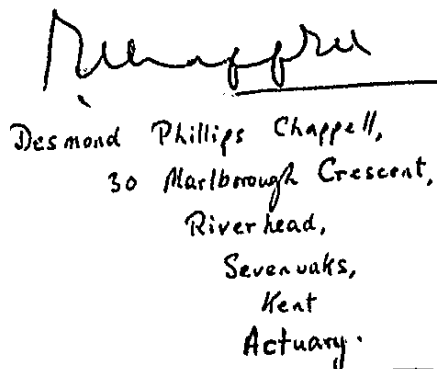 Desmond Phillips Chappell,
30 Marlborough Crescent,
Riverhead,
Sevenoaks,
Kent
Actuary.